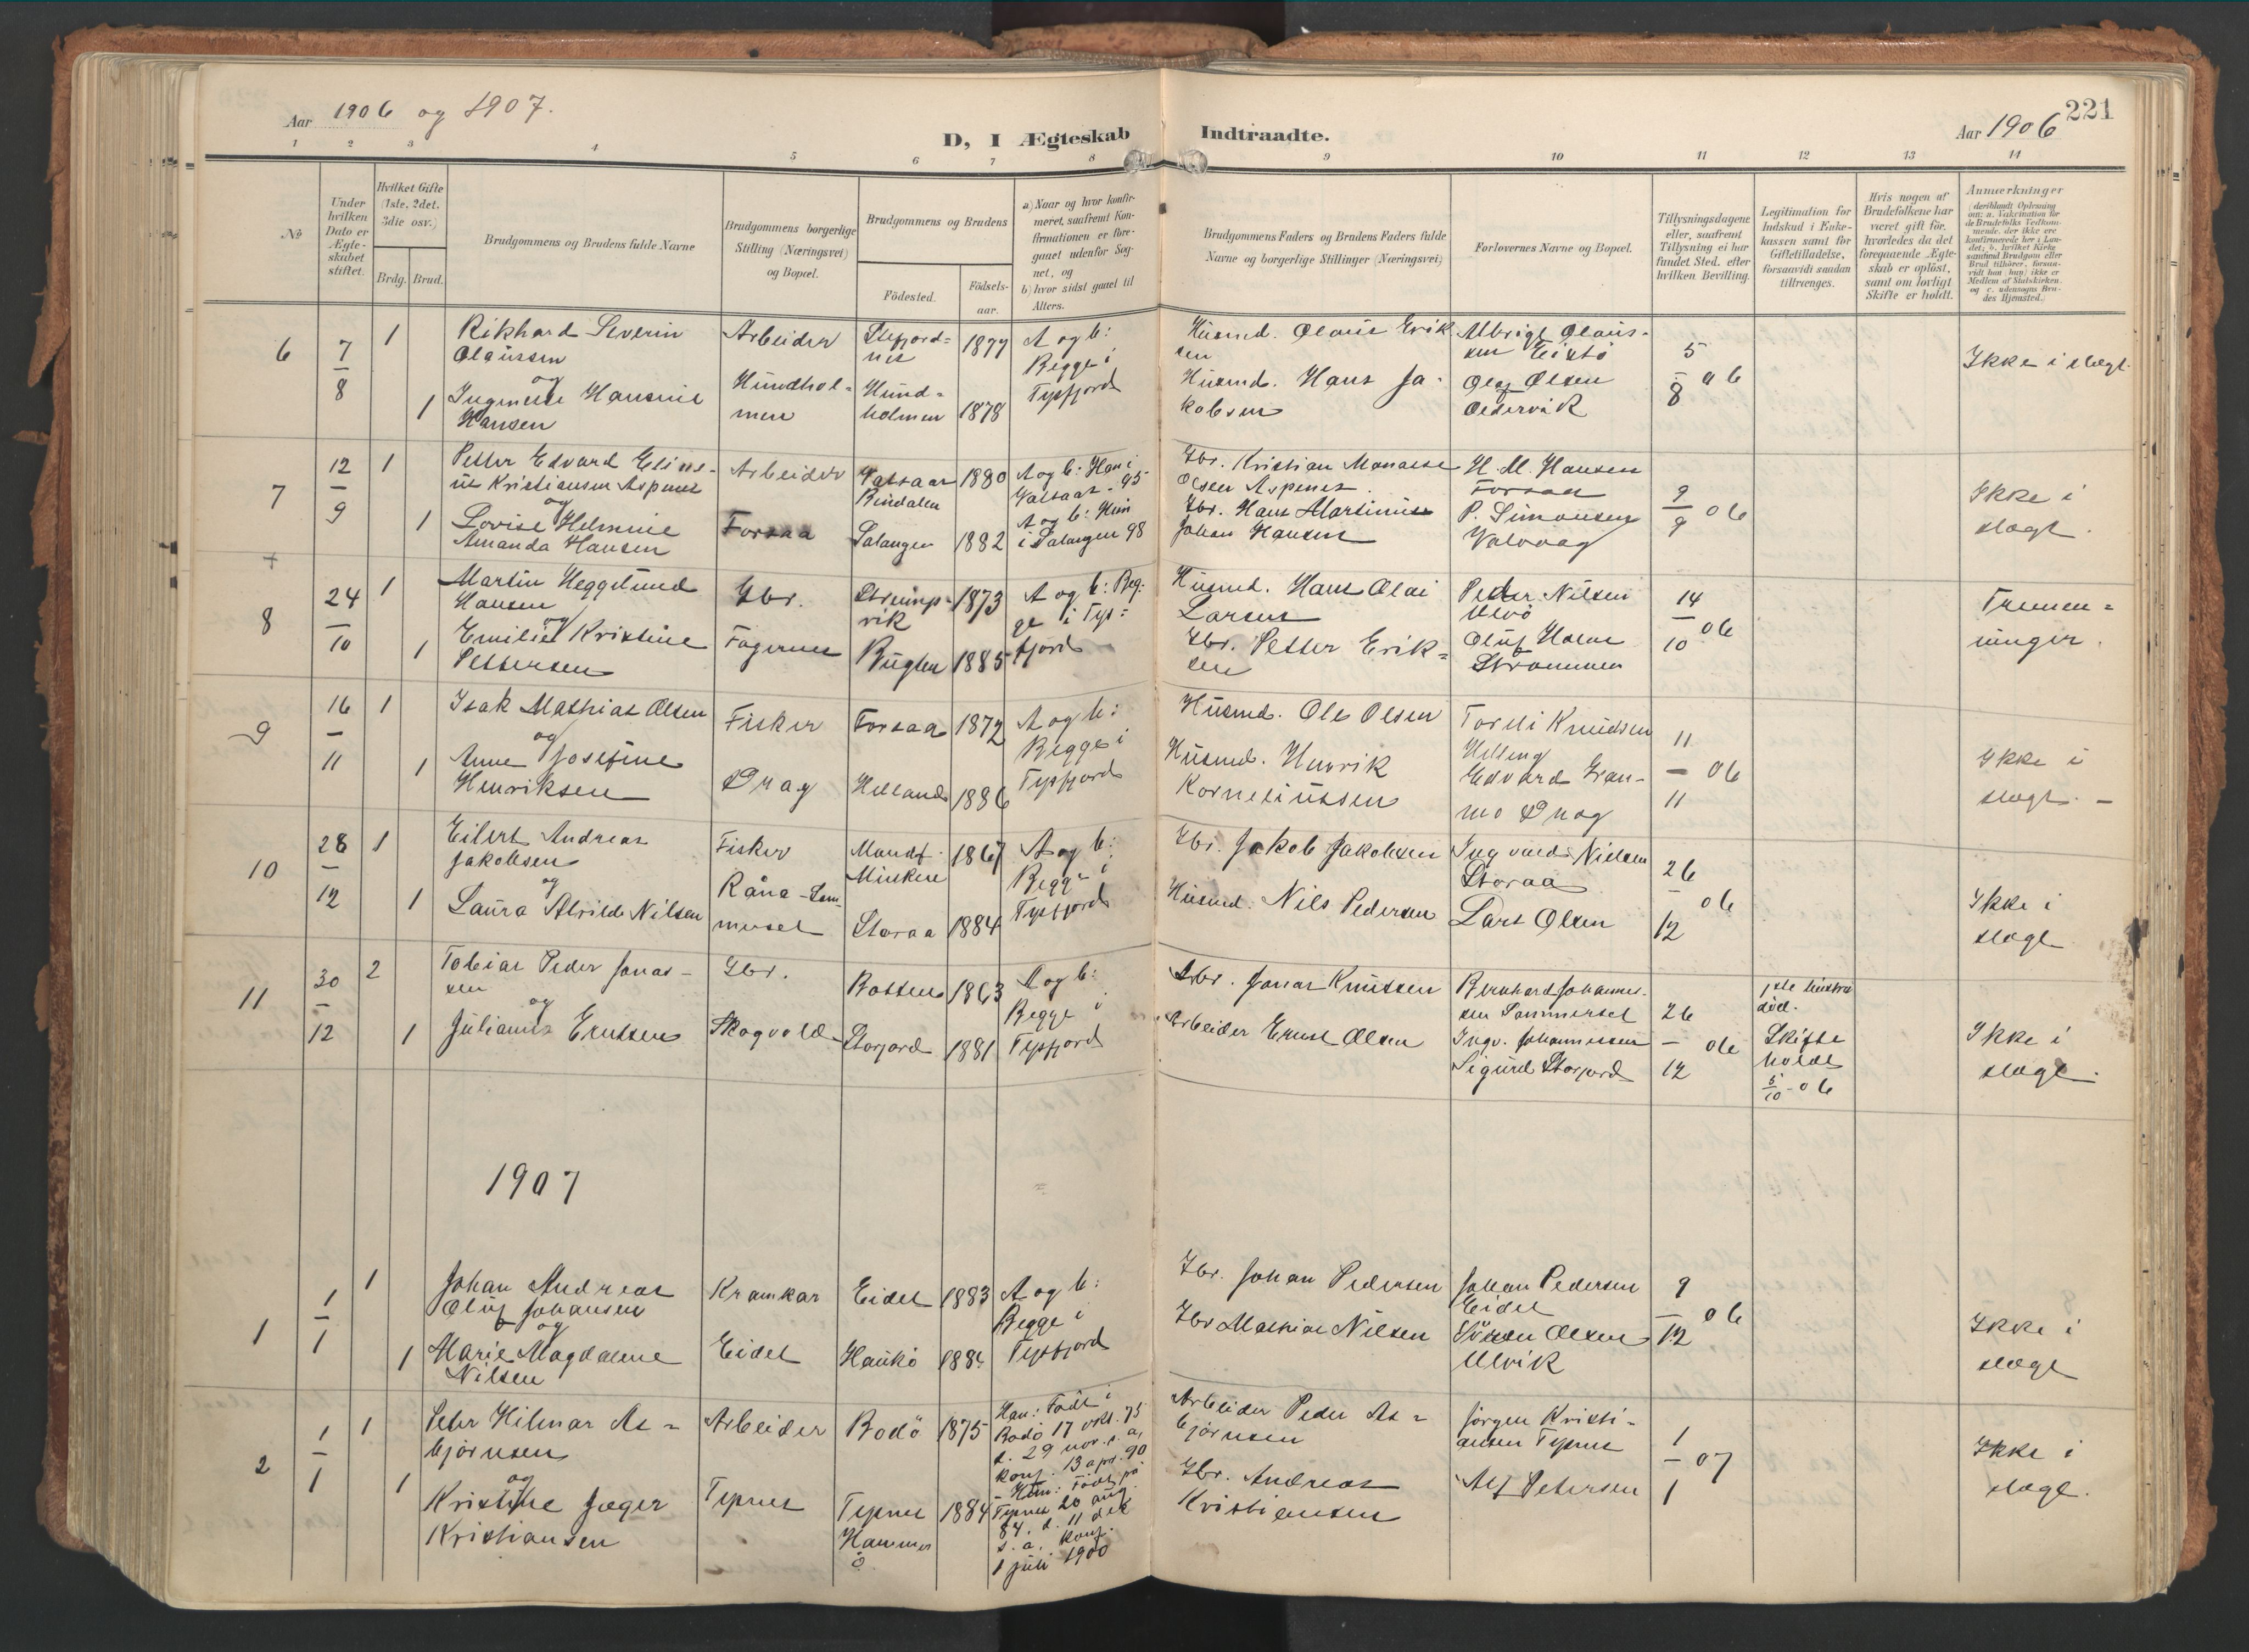 Aar 1906 og 1907.
D, I Ægteskab Indtraadte.
Aar 1906 221
1 2 3 4 5 6 7 8 9 10 11 12 13 14
No
Under hvilken Dato er Ægteskabet stiftet.
Hvilket Gifte (1ste, 2det, 3die osv.)
Brdg. Brud.
Brudgommens og Brudens fulde Navne
Brudgommens borgerlige Stilling (Næringsvei) og Bopæl.
Brudgommens og Brudens
Födested.
Födselsaar.
a) Naar og hvor konfirmeret, saafremt Konfirmationen er foregaaet udenfor Sognet, og
b) hvor sidst gaaet til Alters.
Brudgommens Faders og Brudens Faders fulde Navne og borgerlige Stillinger (Næringsvei)
Forlovernes Navne og Bopæl.
Tillysningsdagene eller, saafremt Tillysning ei har fundet Sted, efter hvilken Bevilling.
Legitimation for Indskud i Enkekassen samt for Giftetilladelse, forsaavidt saadan tiltrænges.
Hvis nogen af Brudefolkene har været gift för, hvorledes da det foregaaende Ægteskab er oplöst, samt om lovligt Skifte er holdt.
Anmærkninger (deriblandt Oplysning om: a. Vakcination for de Brudefolks Vedkommende, der ikke ere konfirmerede her i Landet; b. hvilket Kirkesamfund Brudgom eller Brud tilhörer, forsaavidt han (hun) ikke er Medlem af Statskirken, og c. udensogns Brudes Hjemsted.)
6
7/8
1
Rikhard Severin
Olaussen
og
1
Hansine
Hansen
Arbeider
Hundholmen
Stefjordnes
1877
Hundholmen
1878
A og b:
Begge i
Tysfjord
Husmd. Olaus Eriksen
Husmd. Hans Jakobsen
Albrigt Olaussen
Olaf Olsen
Oldervik
5/8 06
Ikke i slægt.
7
12/9
1
Petter Edvard
Kristiansen Aspenes
og
1
Lovise Helmine
Amanda Hansen
Arbeider
Forsaa
Bindalen
1880
Salangen
1882
A og b: Han i
95
A og b: Hun
i Salangen 98
Gbr. Kristian Manasse
Olsen Aspenes
Gbr. Hans Martinius
Johan Hansen
H. M. Hansen
Forsaa
P. Simonsen
Valvaag
9/9 06
Ikke i
slægt.
8
24/10
1
Martin Heggelund
Hansen
og
1
Emilie Kristine
Pettersen
Gbr.
Fagernes
1873
1885
A og b: Begge i Tysfjord
Husmd. Hans Olai
Larsen
Gbr. Petter Eriksen
Peder Nilsen
Ulvö
Oluf Holm
Strömmen
14/10 06
Tremenninger.
9
16/11
1
Isak Mathias Olsen
og
1
Anne Josefine
Henriksen
Fisker
Drag
Forsaa
1872
Helland
1886
A og b:
Begge i
Tysfjord
Husmd. Ole Olsen
Husmd. Henrik
Korneliussen
Knudsen
Edvard Granmo Drag
11/11 06
Ikke i
slægt.
10
28/12
1
Eilert Andreas
Jakobsen
og
1
Laura Alvilde Nilsen
Fisker
Råna-
1867
Storaa
1884
A og b:
Begge i
Tysfjord
Gbr. Jakob Jakobsen
Husmd. Nils Pedersen
Ingvald Nielsen
Storaa
Lars Olsen
26/12 06
Ikke i
slægt
11
30/12
2
Tobias Peder Jonassen
og
1
Julianne Ernstsen
Gbr.
Skogvold
Botten
1863
Storjord
1881
A og b:
Begge i
Tysfjord
Gbr. Jonas Knutsen
Arbeider Ernst Olsen
Bernhard Johannessen Sommerset
Ingv. Johannessen
Sigurd Storjord
26/12 06
1ste hustru
död.
Skifte
holdt
5/10-06
Ikke i
slægt.
1907
1
1/1
1
Johan Andreas
Oluf Johansen
og
1
Marie Magdalene
Nilsen
Kramkar
Eidet
Eidet
1883
Haukö
A og b:
Begge i
Tysfjord
Gbr. Johan Pedersen
Gbr Mathias Nilsen
Johan Pedersen
Eidet
Sören Olsen
Ulvik
9/12 06
Ikke i
slægt
2
1/1
1
Peter Hilmar Asbjörnsen
og
1
Kristine Jæger
Kristiansen
Arbeider
Tepnes
Bodö
1875
Tepnes
Hammerö
1884
Han: Född i
Bodö 17 okt. 75
d. 29 nov. s. a,
konf. 13 apr. 90
Hun: Född på
Tepnes 20 aug.
84. d. 11 dec
s. a. konf.
1 juli 1900
Arbeider Peder Asbjörnsen
Gbr. Andreas
Kristiansen
Jörgen Kristiansen Tepnes
Alf Petersen
1/1 07
Ikke i
slægt.